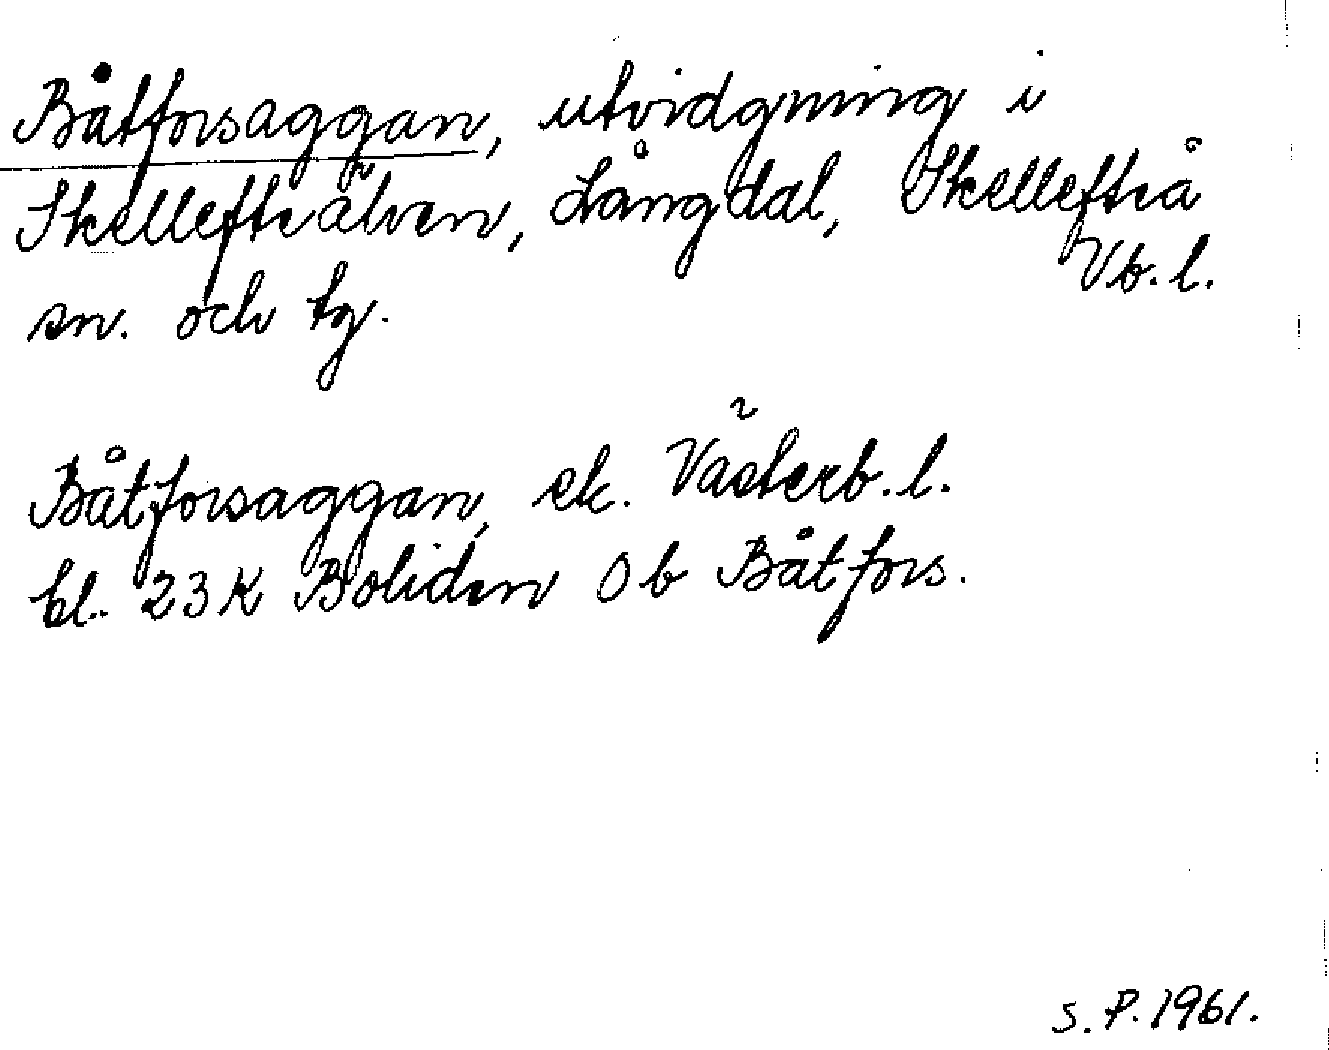 Båtforsaggan, utvidgning i
Skellefteälven, Långdal, Skellefteå
sn. och tg. Vb. l.
Båtforsaggan, ek. Västerb. l.
bl. 23 K Boliden Ob Båtfors.
S. P. 1961.